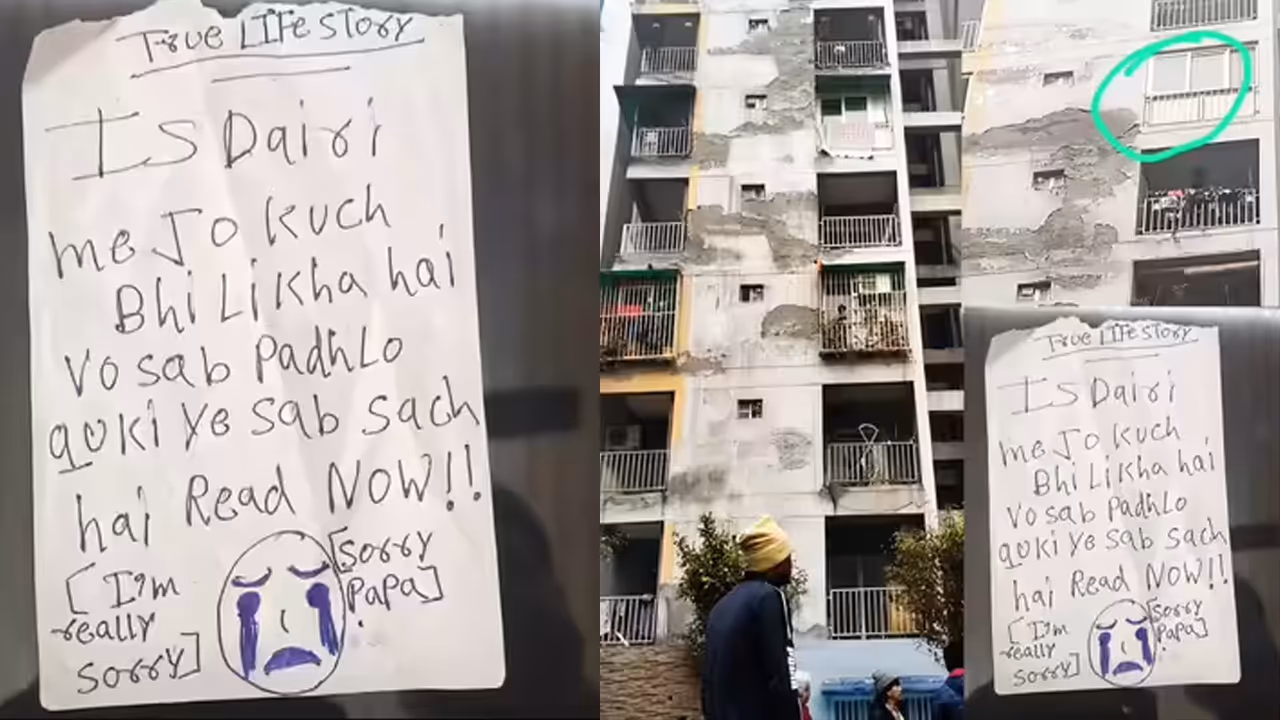 True LIFe story
Is Dairi
me Jo kuch
Bhi Likha hai
Vo sab Padh Lo
quki ye sab sach
hai Read NOW!!
[I'm really sorry]
[sorry Papa]
True LIFe story
Is Dairi
me Jo kuch
Bhi Likha hai
Vo sab Padh Lo
quki ye sab sach
hai Read NOW!!
[I'm really sorry]
[sorry Papa]